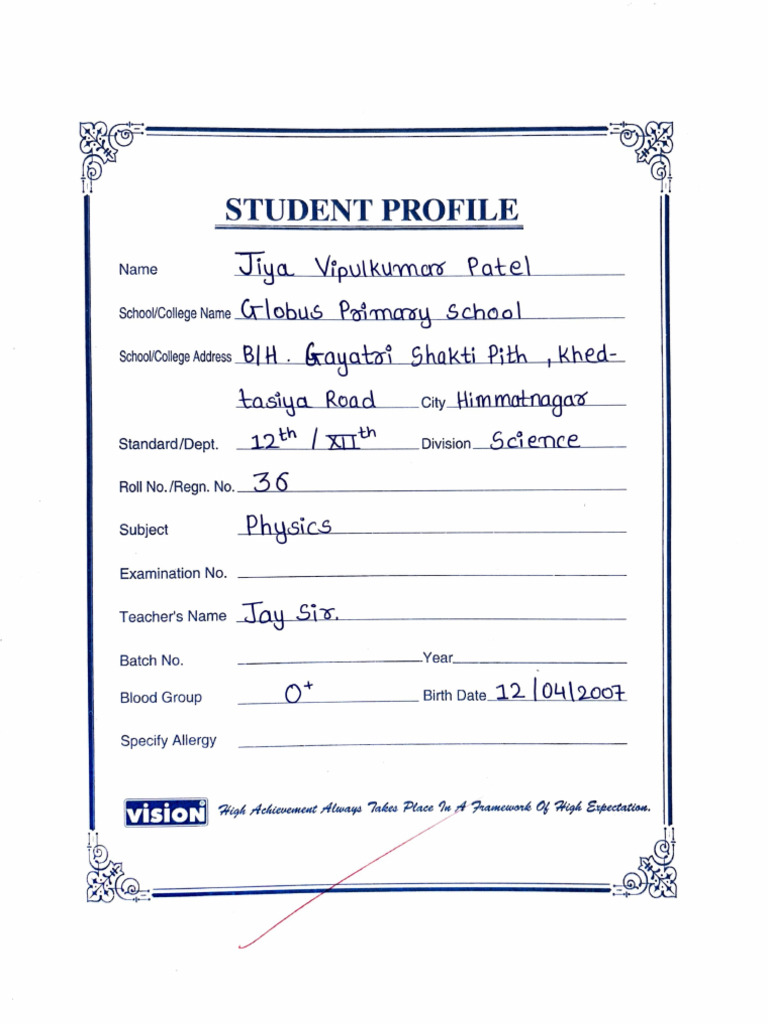 STUDENT PROFILE
Name Jiya Vipulkumar Patel
School/College Name Globus Primary School
School/College Address B/H. Gayatri Shakti Pith, Khed-
tasiya Road City Himmatnagar
Standard/Dept. 12th / XIIth Division Science
Roll No./Regn. No. 36
Subject Physics
Examination No.
Teacher's Name Jay Sir.
Batch No. Year
Blood Group O+ Birth Date 12/04/2007
Specify Allergy
vision High Achievement Always Takes Place In A Framework Of High Expectation.